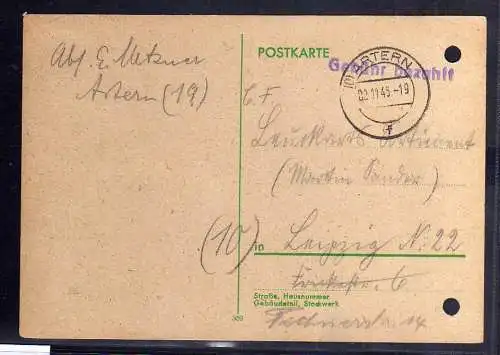 Abs. E. Metzner
Artern (19)
POSTKARTE
Gebühr bezahlt
ARTERN
02.11.45.-19
f
C. F
Leuckart's Sortiment
(Martin Sander)
(10)
in Leipzig N. 22
6
Straße, Hausnummer
Gebäudeteil, Stockwerk
14